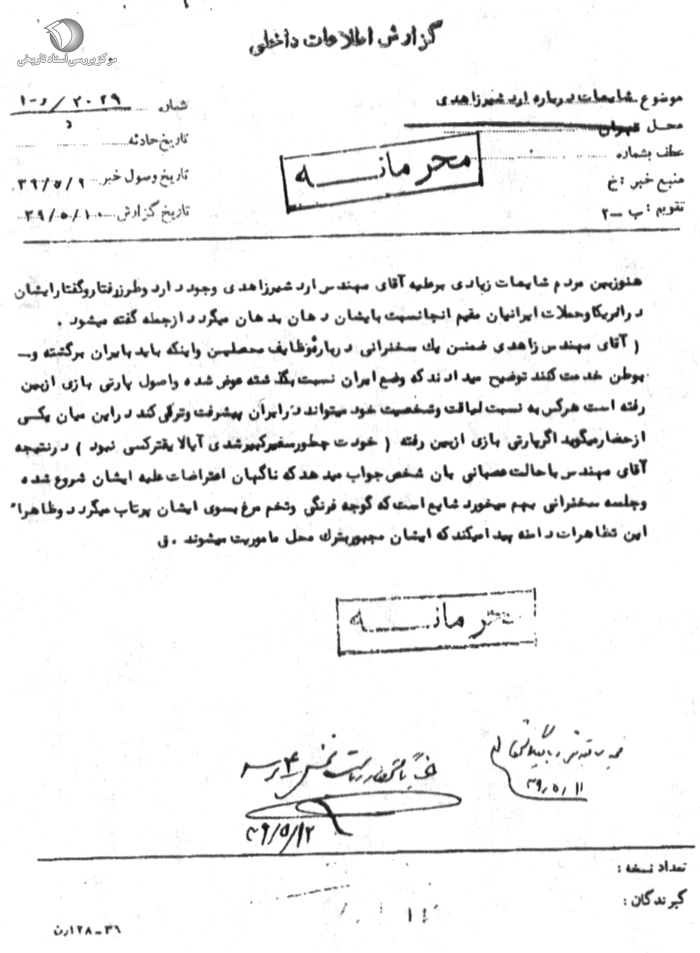 مرکز بررسی اسناد تاریخی
گزارش اطلاعات داخلی
موضوع شایعات درباره اردشیرزاهدی
محل تهران
عطف بشماره
منبع خبر : خ
تقویم : ب -۲
شماره ۲۰۲۹/ د-۱
د
تاریخ حادثه
تاریخ وصول خبر ۳۹/۵/۹
تاریخ گزارش ۳۹/۵/۱۰
محرمانه
هنوزبین مردم شایعات زیادی برعلیه آقای مهندس اردشیرزاهدی وجود دارد وطرزرفتاروگفتارایشان
درامریکاوحملات ایرانیان مقیم انجانسبت بایشان دهان بدهان میگردد ازجمله گفته میشود .
( آقای مهندس زاهدی ضمن یک سخنرانی درباره وظایف محصلین واینکه باید بایران برگشته و
بوطن خدمت کنند توضیح میدادند که وضع ایران نسبت بگذشته عوض شده واصول پارتی بازی ازبین
رفته است هرکس به نسبت لیاقت وشخصیت خود میتواند درایران پیشرفت وترقی کند دراین میان یکی
ازحضارمیگوید اگرپارتی بازی ازبین رفته ( خودت چطورسفیرکبیرشدی آیالایقترکسی نبود ) درنتیجه
آقای مهندس باحالت عصبانی بان شخص جواب میدهد که ناگهان اعتراضات علیه ایشان شروع شده
وجلسه سخنرانی بهم میخورد شایع است که گوجه فرنگی وتخم مرغ بسوی ایشان پرتاب میگردد وظاهراً
این تظاهرات دامنه پیدا میکند که ایشان مجبوربترک محل ماموریت میشوند . ق
محرمانه
۳۹/۵/۱۱
۳۹/۵/۱۲
تعداد نسخه :
گیرندگان :
۳۶-۱۲۸رن